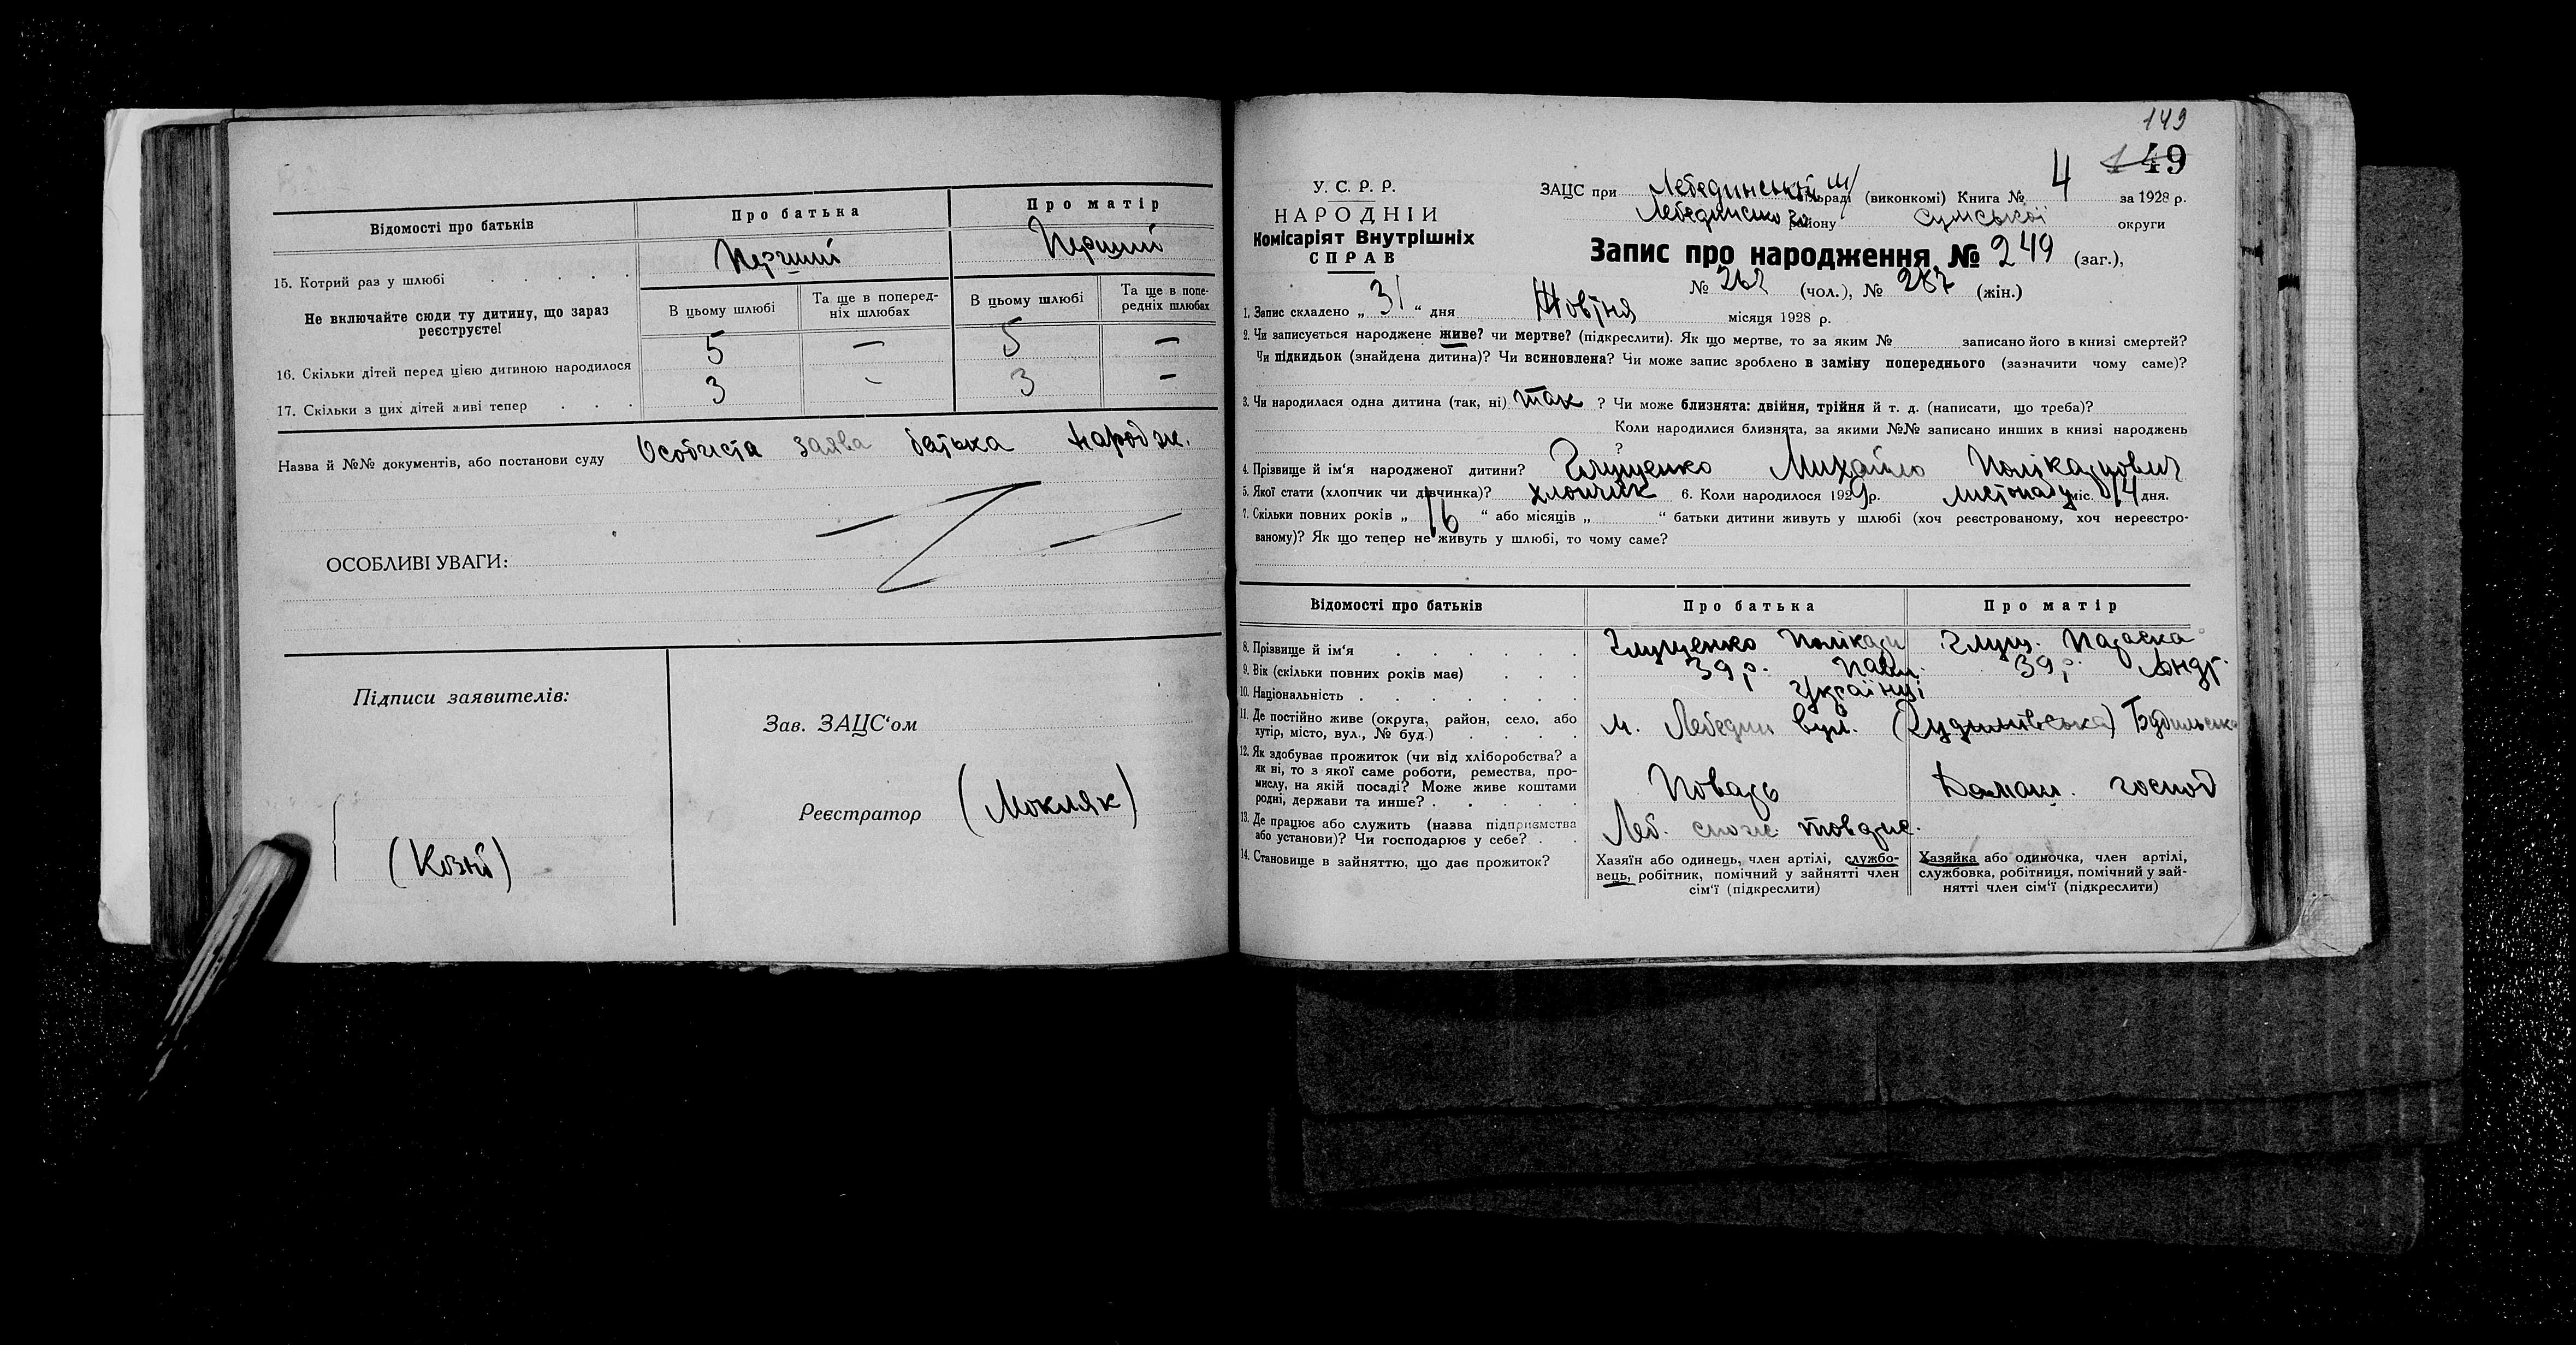 Відомості про батьків
Про батька
Про матір
15. Котрий раз у шлюбі
Перший
Перший
Не включайте сюди ту дитину, що зараз реєструєте!
В цьому шлюбі
Та ще в попередніх шлюбах
В цьому шлюбі
Та ще в попередніх шлюбах
16. Скільки дітей перед цією дитиною народилося
5 — 5 —
17. Скільки з цих дітей живі тепер
3 - 3 —
Назва й №№ документів, або постанови суду Особиста заява батька народж.
ОСОБЛИВІ УВАГИ:
Підписи заявителів:
Зав. ЗАЦС‘ом
Реєстратор (Мокляк)
149
149
У. С. Р. Р.
НАРОДНІЙ
Комісаріят Внутрішніх
СПРАВ
ЗАЦС при Лебединській м/ сільраді (виконкомі) Книга № 4 за 1928 р.
Лебединсько го району Сумської округи
Запис про народження № 249 (заг.),
№ 262 (чол.), № 287 (жін.)
1. Запис складено „ 31 “ дня Жовтня місяця 1928 р.
2. Чи записується народжене живе? чи мертве? (підкреслити). Як що мертве, то за яким № записано його в книзі смертей?
Чи підкидьок (знайдена дитина)? Чи всиновлена? Чи може запис зроблено в заміну попереднього (зазначити чому саме)?
3. Чи народилася одна дитина (так, ні) так ? Чи може близнята: двійня, трійня й т. д. (написати, що треба)?
Коли народилися близнята, за якими №№ записано инших в книзі народжень
?
4. Прізвище й ім‘я народженої дитини? Глущенко Михайло Полікарпович
5. Якої стати (хлопчик чи дівчинка)? хлопчик 6. Коли народилося 1929 р. листопаду міс. 14 дня.
7. Скільки повних років „ 16 “ або місяців „ “ батьки дитини живуть у шлюбі (хоч реєстрованому, хоч нереєстро-
ваному)? Як що тепер не живуть у шлюбі, то чому саме?
Відомості про батьків
Про батька
Про матір
8. Прізвище й ім‘я
Глущенко Полікарп
Павл.
Глущ. Параска
Андр.
9. Вік (скільки повних років має)
39 р.
39 р.
10. Національність
Українці
11. Де постійно живе (округа, район, село, або
хутір, місто, вул., № буд.)
м. Лебедин вул. Будильська
12. Як здобуває прожиток (чи від хліборобства? а
як ні, то з якої саме роботи, ремества, про-
мислу, на якій посаді? Може живе коштами
родні, держави та инше?
Поварь
Домаш. господ
13. Де працює або служить (назва підприємства
або установи)? Чи господарює у себе?
Леб. спож. товарис.
14. Становище в зайняттю, що дає прожиток?
Хазяїн або одинець, член артілі, службо-
вець, робітник, помічний у зайнятті член
сім‘ї (підкреслити)
Хазяйка або одиночка, член артілі,
службовка, робітниця, помічний у зай-
нятті член сім‘ї (підкреслити)